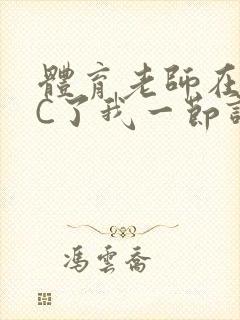 體育老師在
C了我一節
馮雲喬